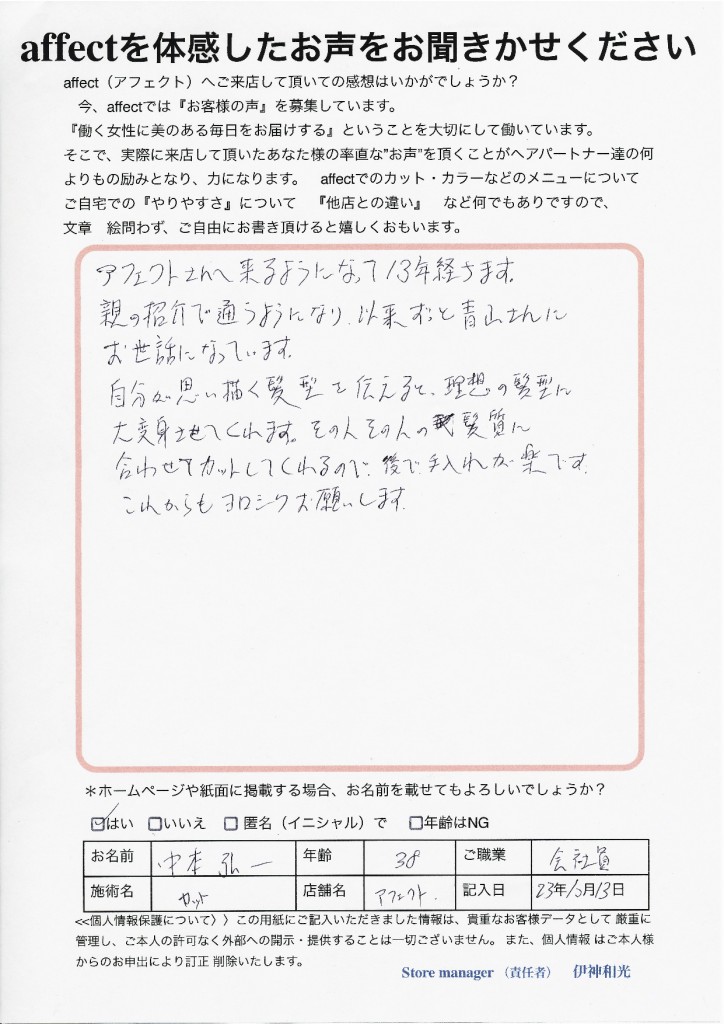 affectを体感したお声をお聞きかせください
affect（アフェクト）へご来店して頂いての感想はいかがでしょうか？
今、affectでは『お客様の声』を募集しています。
『働く女性に美のある毎日をお届けする』ということを大切にして働いています。
そこで、実際に来店して頂いたあなた様の率直な”お声”を頂くことがヘアパートナー達の何
よりもの励みとなり、力になります。　affectでのカット・カラーなどのメニューについて
ご自宅での『やりやすさ』について　『他店との違い』　など何でもありですので、
文章　絵問わず、ご自由にお書き頂けると嬉しくおもいます。
アフェクトさんへ来るようになって13年経ちます。
親の紹介で通うようになり、以来ずっと青山さんに
お世話になっています。
自分が思い描く髪型を伝えると、理想の髪型に
大変身させてくれます。その人その人の髪質に
合わせてカットしてくれるので、後で手入れが楽です。
これからもヨロシクお願いします。
＊ホームページや紙面に掲載する場合、お名前を載せてもよろしいでしょうか？
☑はい　□いいえ　□ 匿名（イニシャル）で　□年齢はNG
お名前　中本 弘一　年齢　38　ご職業　会社員
施術名　カット　店舗名　アフェクト.　記入日　23年10月13日
<<個人情報保護について〉〉この用紙にご記入いただきました情報は、貴重なお客様データとして 厳重に
管理し、ご本人の許可なく外部への開示・提供することは一切ございません。また、個人情報 はご本人様
からのお申出により訂正 削除いたします。
Store manager （責任者）　伊神和光